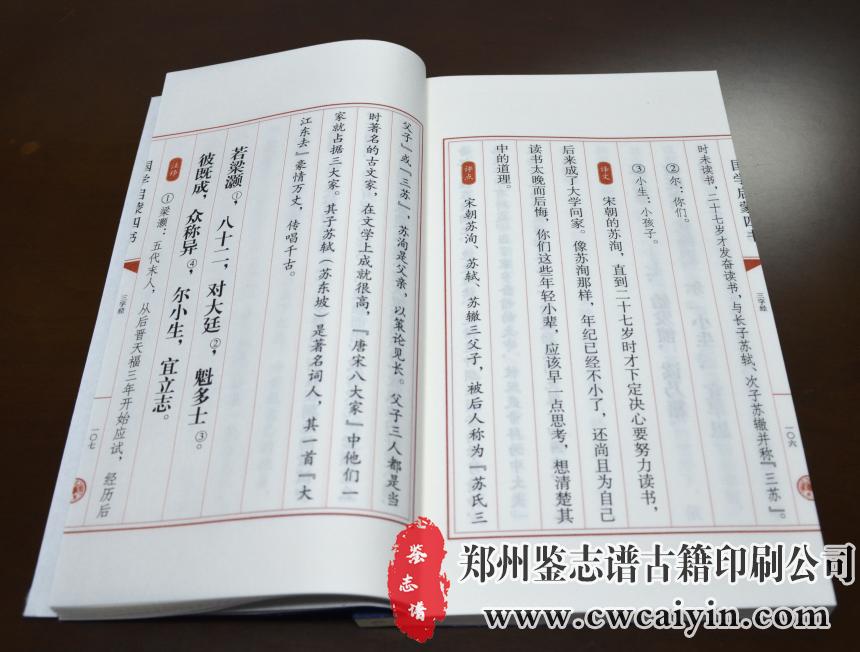 国学启蒙四书
三字经
一〇六
时未读书，二十七岁才发奋读书，与长子苏轼、次子苏辙并称『三苏』。
②尔：你们。
③小生：小孩子。
译文
宋朝的苏洵，直到二十七岁时才下定决心要努力读书，
后来成了大学问家。像苏洵那样，年纪已经不小了，还尚且为自己
读书太晚而后悔，你们这些年轻小辈，应该早一点思考，想清楚其
中的道理。
评点
宋朝苏洵、苏轼、苏辙三父子，被后人称为『苏氏三
父子』或『三苏』，苏洵是父亲，以策论见长。父子三人都是当
时著名的古文家，在文学上成就很高，『唐宋八大家』中他们一
家就占据三大家。其子苏轼（苏东坡）是著名词人，其一首『大
江东去』豪情万丈，传唱千古。
若梁灏①，八十二，对大廷②，魁多士③。
彼既成，众称异④，尔小生，宜立志。
注释
①梁灏：五代末人，从后晋天福三年开始应试，经历后
国学启蒙四书
三字经
一〇七
鉴志谱
郑州鉴志谱古籍印刷公司
www.cwcaiyin.com